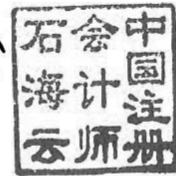 中国注册
会计师
石海云